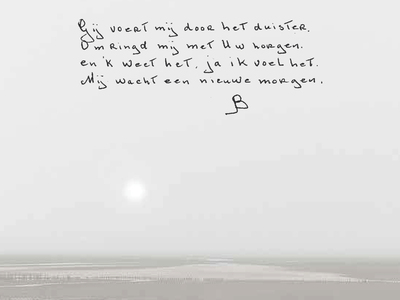 Gij voert mij door het duister,
Omringd mij met Uw zorgen.
en 'k weet het, ja ik voel het.
Mij wacht een nieuwe morgen.
B